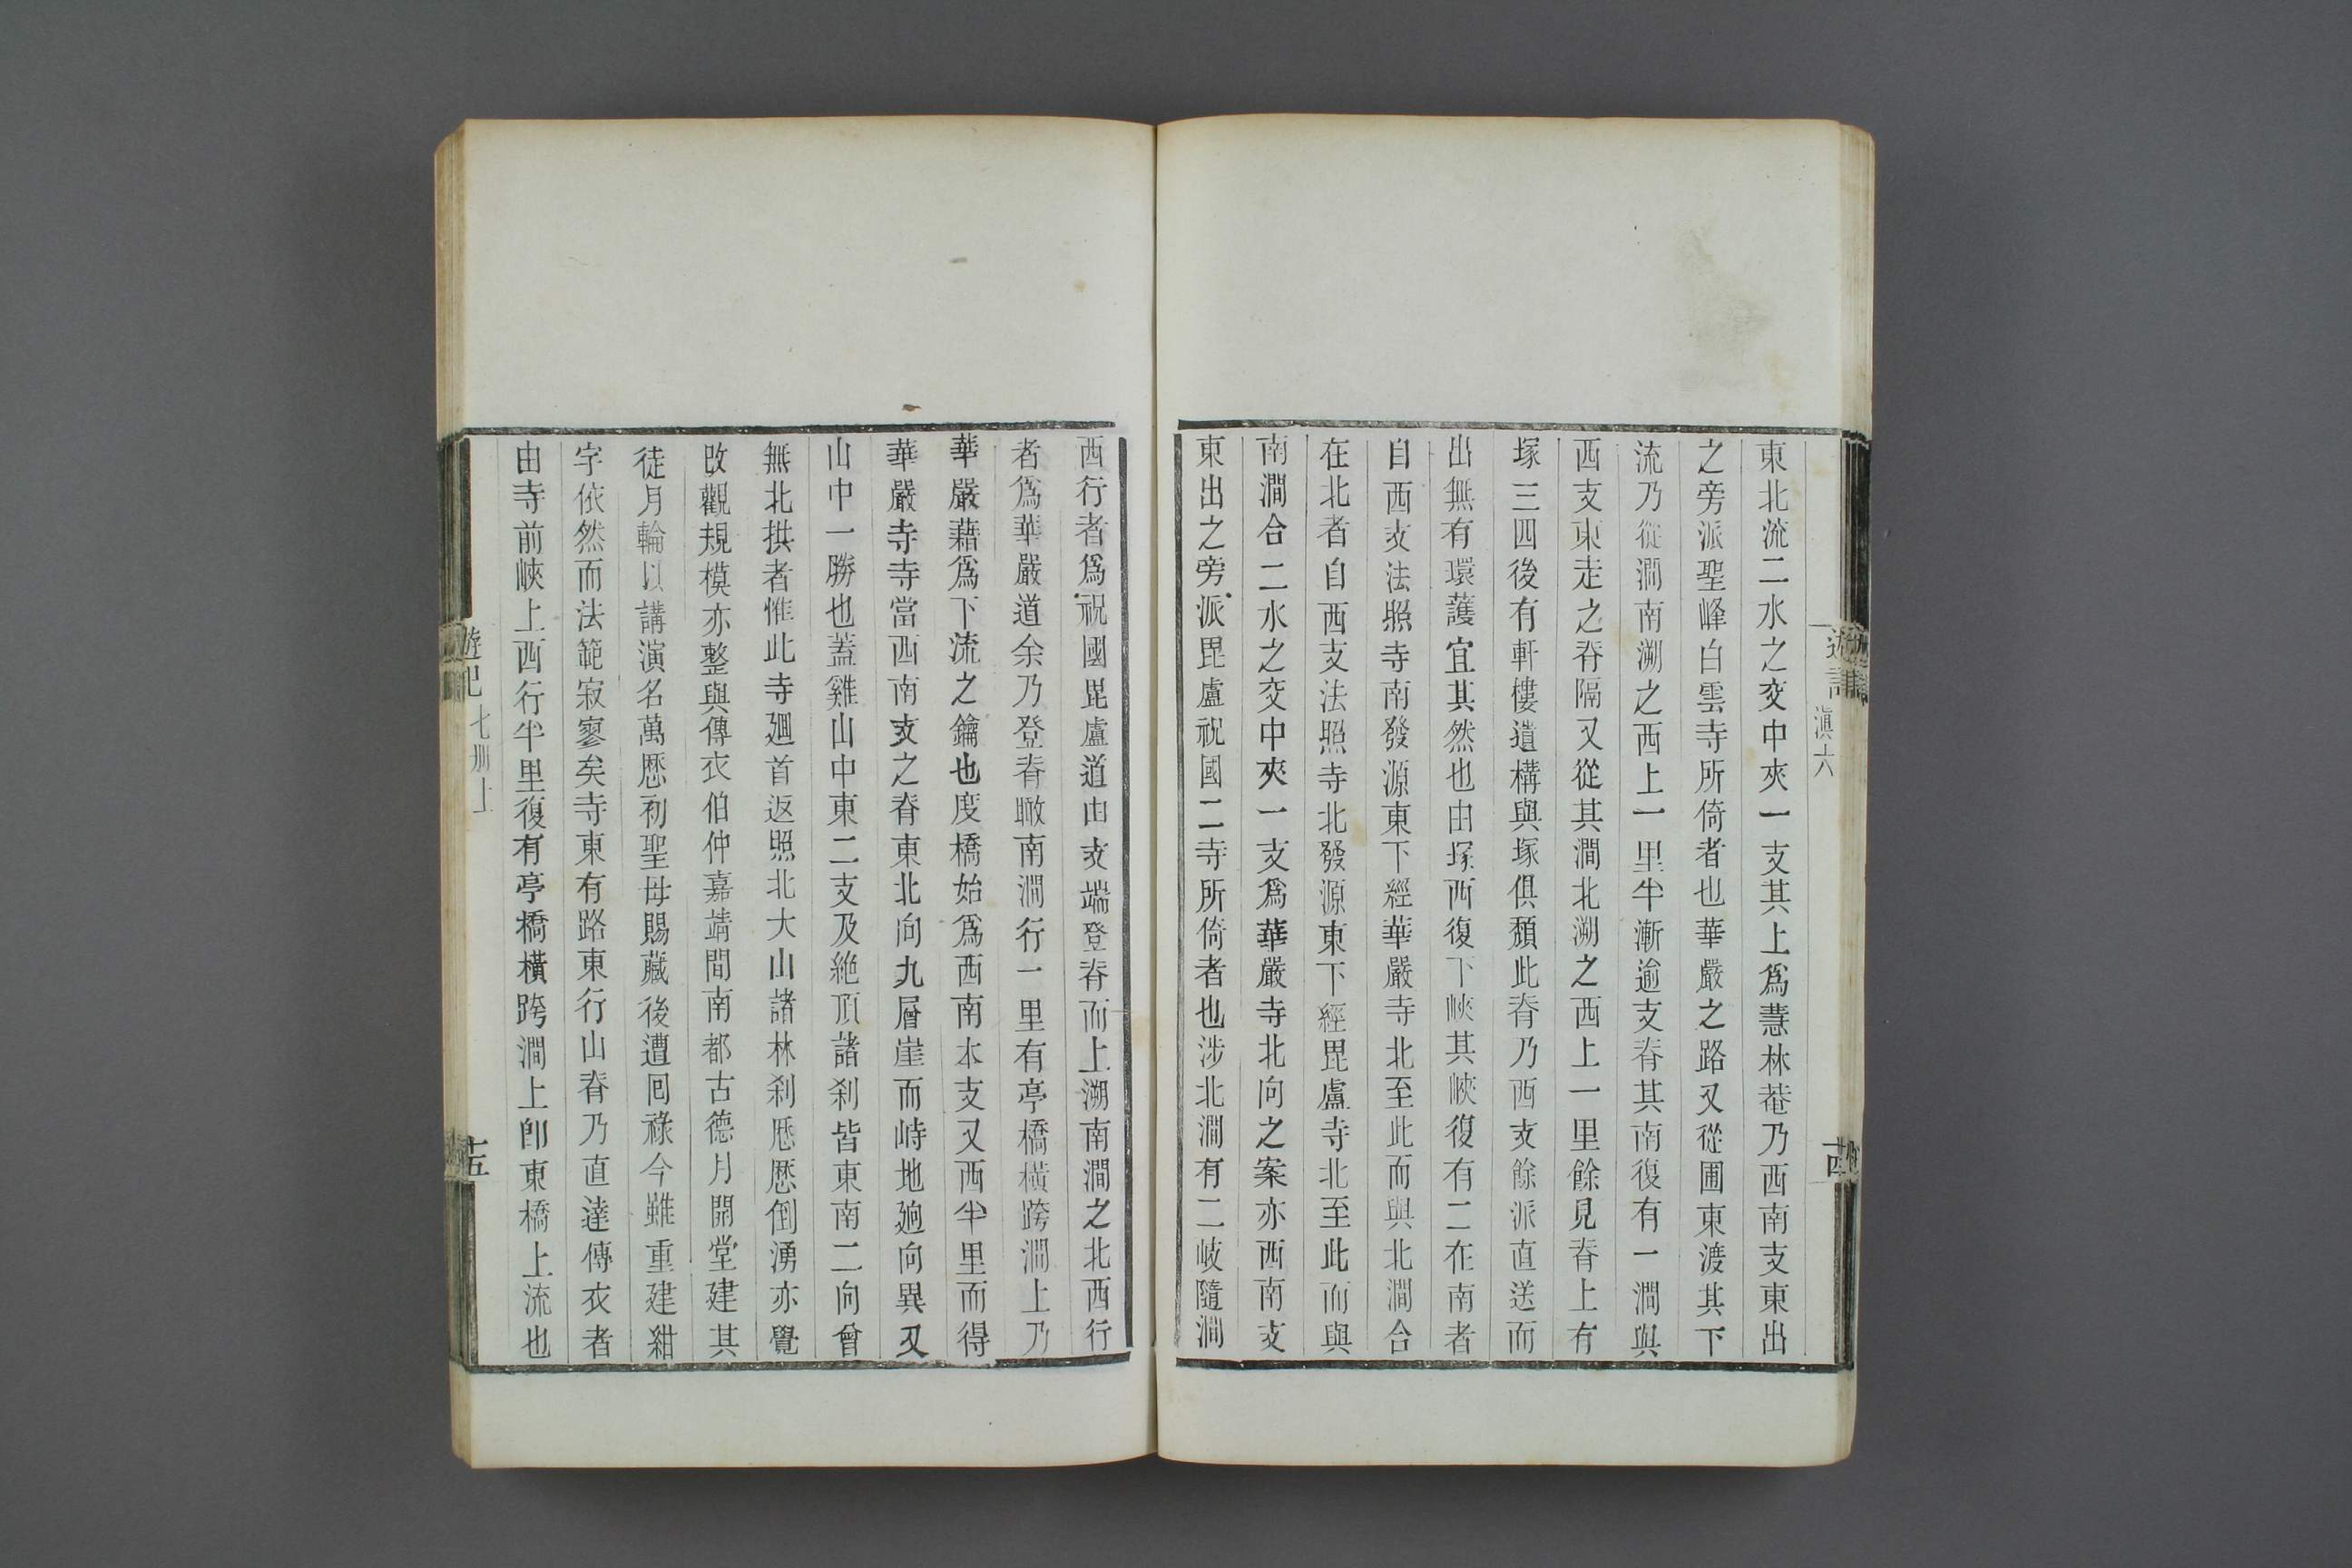 遊記
滇六
東北流二水之交中夾一支其上爲慧林菴乃西南支東出
之旁派聖峰白雲寺所倚者也華嚴之路又從圃東渡其下
流乃從澗南溯之西上一里半漸逾支脊其南復有一澗與
西支東走之脊隔又從其澗北溯之西上一里餘見脊上有
塚三四後有軒樓遺構與塚俱頹此脊乃西支餘派直送而
出無有環護宜其然也由塚西復下峽其峽復有二在南者
自西支法照寺南發源東下經華嚴寺北至此而與北澗合
在北者自西支法照寺北發源東下經毘盧寺北至此而與
南澗合二水之交中夾一支爲華嚴寺北向之案亦西南支
東出之旁派毘盧祝國二寺所倚者也涉北澗有二岐隨澗
西行者爲祝國毘盧道由支端登脊而上溯南澗之北西行
者爲華嚴道余乃登脊瞰南澗行一里有亭橋橫跨澗上乃
華嚴藉爲下流之鑰也度橋始爲西南本支又西半里而得
華嚴寺寺當西南支之脊東北向九層崖而峙地逈向異又
山中一勝也蓋雞山中東二支及絶頂諸刹皆東南二向曾
無北拱者惟此寺廻首返照北大山諸林刹歷歷倒湧亦覺
改觀規模亦整與傳衣伯仲嘉靖間南都古德月開堂建其
徒月輪以講演名萬歷初聖母賜藏後遭回祿今雖重建紺
字依然而法範寂寥矣寺東有路東行山脊乃直達傳衣者
由寺前峽上西行半里復有亭橋橫跨澗上卽東橋上流也
遊記
七册上
十五